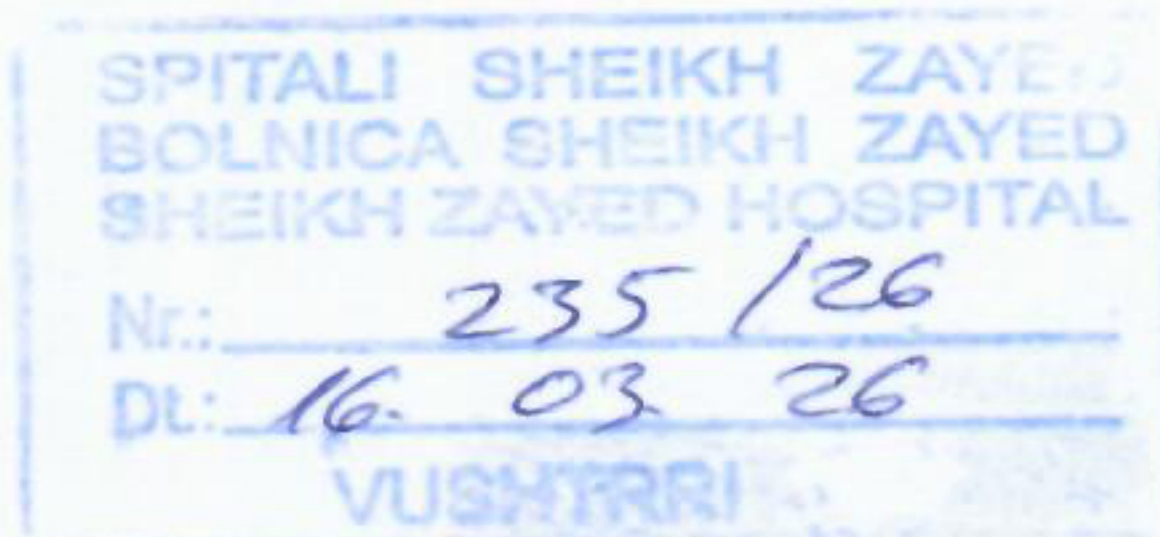 SPITALI SHEIKH ZAYED
BOLNICA SHEIKH ZAYED
SHEIKH ZAYED HOSPITAL
Nr.: 235 /26
Dt.: 16. 03 26
VUSHTRRI